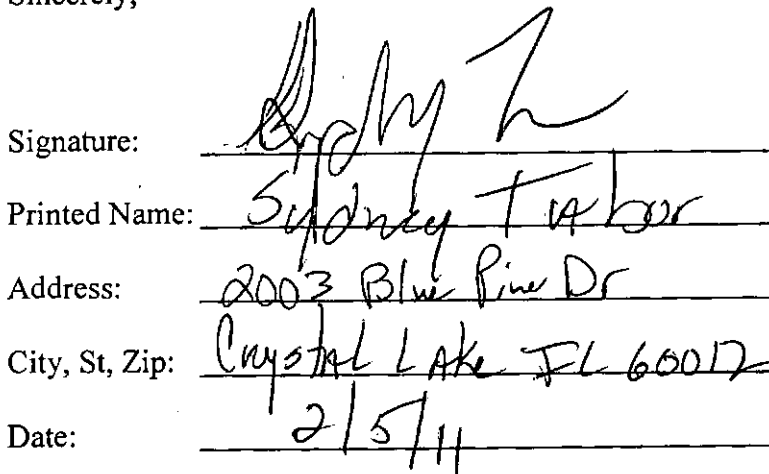 Sincerely,
Signature: Sydny T
Printed Name: Sydney Tabor
Address: 2003 Blue Pine Dr
City, St, Zip: Crystal Lake IL 60012
Date: 2/5/11